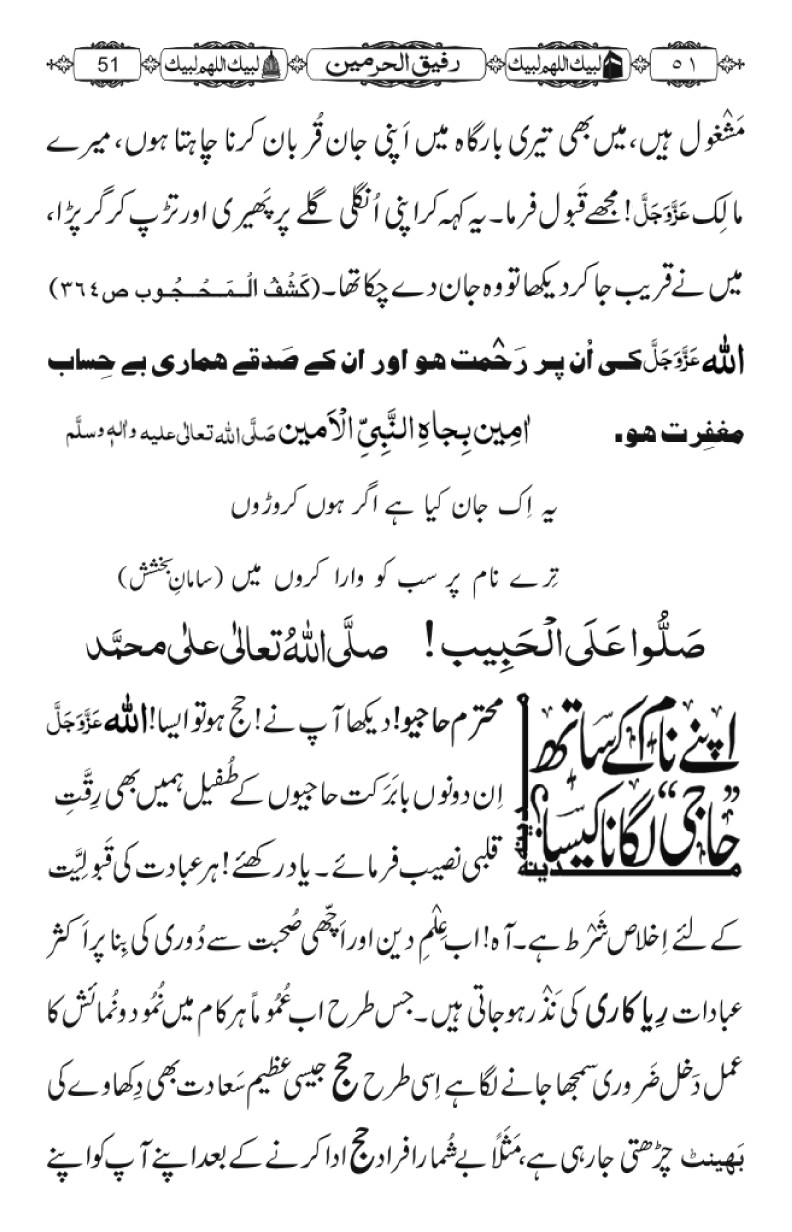 ٥١ لبیك اللھم لبیك رفیق الحرمین لبیك اللھم لبیك 51
مَشْغول ہیں، میں بھی تیری بارگاہ میں اَپنی جان قُربان کرنا چاہتا ہوں، میرے
مالِک عَزَّوَجَلَّ! مجھے قَبول فرما۔ یہ کہہ کر اپنی اُنگلی گلے پر پَھیری اور تڑپ کر گر پڑا،
میں نے قریب جا کر دیکھا تو وہ جان دے چکا تھا۔ (کَشْفُ الْمَحْجُوب ص٣٦٤)
اللّٰہ عَزَّوَجَلَّ کی اُن پر رَحْمت ہو اور ان کے صَدقے ہماری بے حِساب
مغفِرت ہو۔ اٰمِین بِجاہِ النَّبِیِّ الْاَمین صَلَّی اللہ تعالیٰ علیہ واٰلہٖ وسلَّم
یہ اِک جان کیا ہے اگر ہوں کروڑوں
تِرے نام پر سب کو وارا کروں میں (سامانِ بخشش)
صَلُّوا عَلَی الْحَبِیب! صلَّی اللہُ تعالیٰ علیٰ محمَّد
اپنے نام کے ساتھ
”حاجی“ لگانا کیسا؟
مدینہ
مدینہ
محترم حاجیو! دیکھا آپ نے! حج ہو تو ایسا! اللّٰہ عَزَّوَجَلَّ
اِن دونوں بابَرَکت حاجیوں کے طُفیل ہمیں بھی رِقَّتِ
قلبی نصیب فرمائے۔ یاد رکھئے! ہر عبادت کی قَبولِیَّت
کے لئے اِخلاص شَرْط ہے۔ آہ! اب عِلْمِ دین اور اَچّھی صُحبت سے دُوری کی بِنا پر اَکثر
عبادات رِیاکاری کی نَذْر ہو جاتی ہیں۔ جس طرح اب عُمُوماً ہر کام میں نُمُود و نُمائش کا
عمل دَخل ضَروری سمجھا جانے لگا ہے اِسی طرح حج جیسی عظیم سَعادت بھی دِکھاوے کی
بَھینٹ چڑھتی جا رہی ہے، مَثَلاً بے شُمار افراد حج ادا کرنے کے بعد اپنے آپ کو اپنے